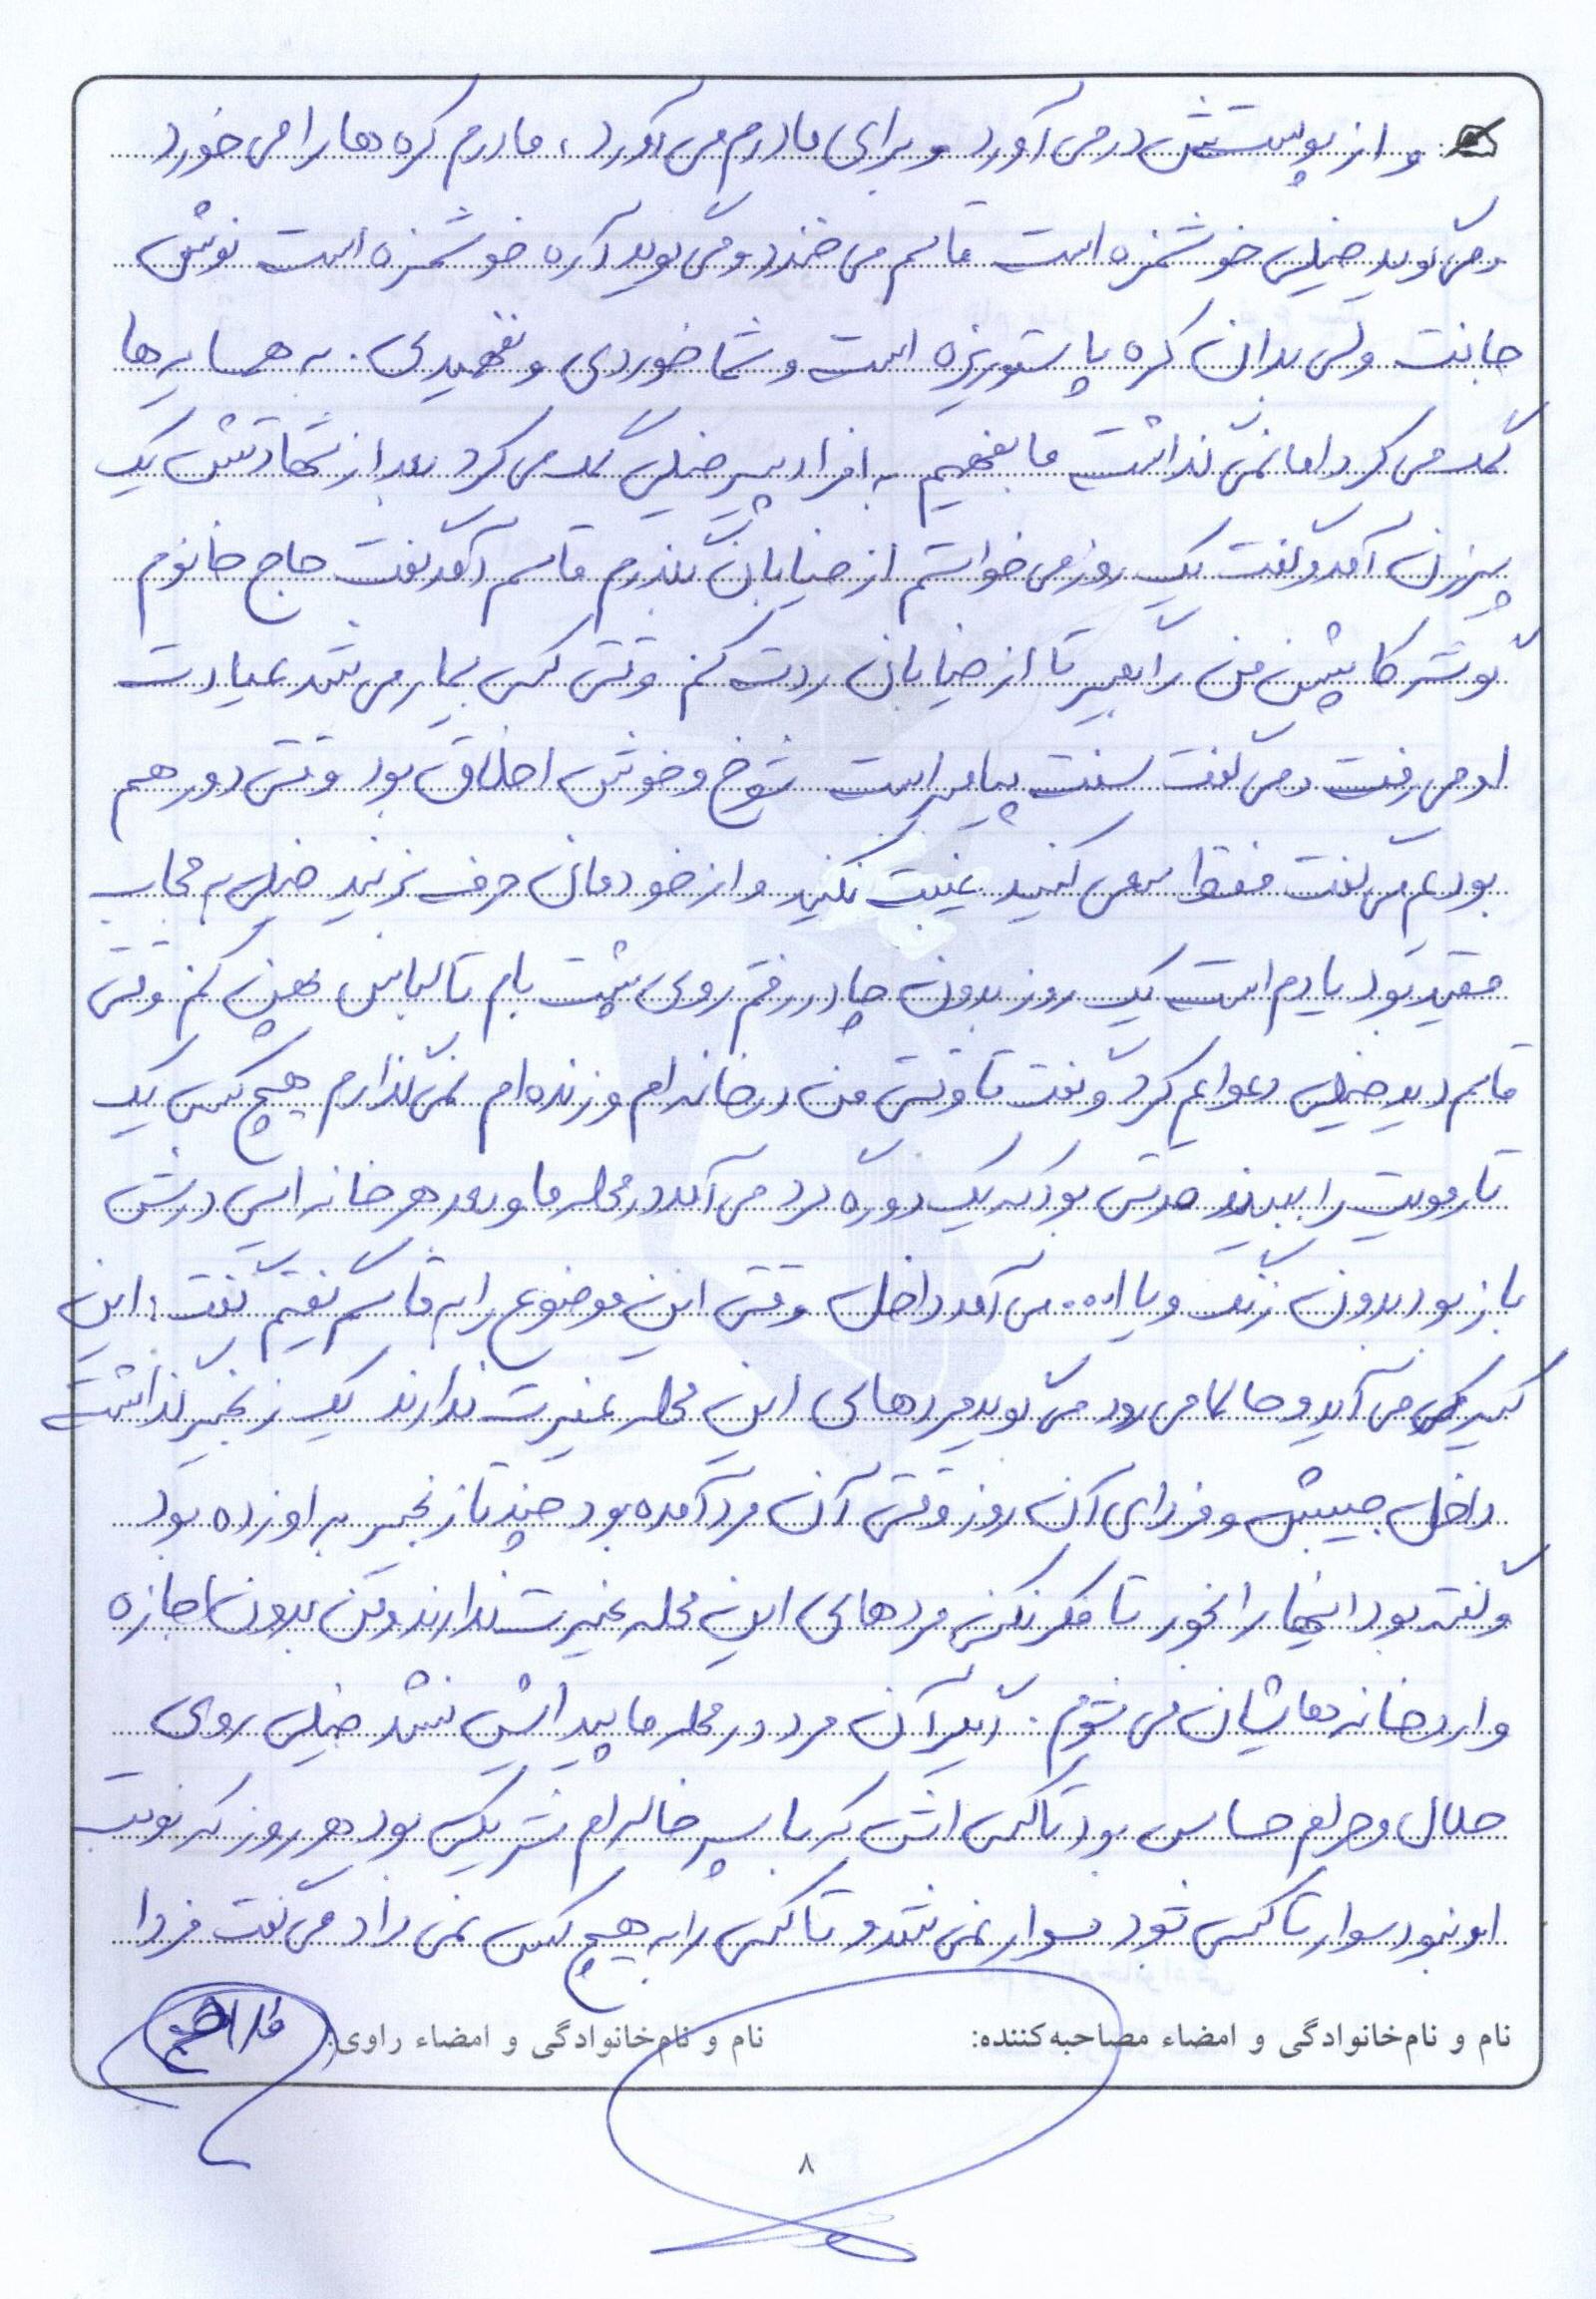 و از پوستش در می آورد و برای مادرم می آورد، مادرم کره ها را می خورد
و می گوید خیلی خوشمزه است قاسم می خندد و می گوید آره خوشمزه است نوش
جانت ولی بدان کره پاستوریزه است و شما خوردی و نفهمیدی. به همسایه ها
کمک می کرد اما نمی گذاشت ما بفهمیم به افراد پیر خیلی کمک می کرد بعد از شهادتش یک
پیرزن آمد و گفت یک روز می خواستم از خیابان بگذرم قاسم آمد گفت حاج خانوم
گوشه کاپشن من را بگیر تا از خیابان ردت کنم وقتی کسی بیمار می شد عیادت
او می رفت و می گفت سنت پیامبر است شوخ و خوش اخلاق بود وقتی دور هم
بودیم می گفت فقط سعی کنید غیبت نکنید و از خودمان حرف بزنید خیلی به حجاب
مقید بود یادم است یک روز بدون چادر رفتم روی پشت بام تا لباس پهن کنم وقتی
قاسم دید خیلی دعوایم کرد و گفت تا وقتی من در خانه ام و زنده ام نمی گذارم هیچ کس یک
تار مویت را ببیند مدتی بود که یک دوره گرد می آمد در محله ما و بعد هر خانه ایی درش
باز بود بدون زنگ و یا ا... می آمد داخل وقتی این موضوع را به قاسم گفتیم گفت: این
می آید و حالا می رود می گوید مردهای این محله غیرت ندارند یک زنجیر گذاشت
داخل جیبش و فردای آن روز وقتی آن مرد آمده بود چند تا زنجیر به او زده بود
و گفته بود اینها را بخور تا فکر نکنی مردهای این محله غیرت ندارند و من بدون اجازه
وارد خانه هاشان می شوم. دیگر آن مرد در محله ما پیدایش نشد خیلی روی
حلال و حرام حساس بود تاکسی اش که با پسر خاله ام شریک بود هر روز که نوبت
او نبود سوار تاکسی خود سوار نمی شد و تاکسی را به هیچ کس نمی داد می گفت فردا
نام و نام‌خانوادگی و امضاء مصاحبه‌کننده: نام و نام‌خانوادگی و امضاء راوی:
۸